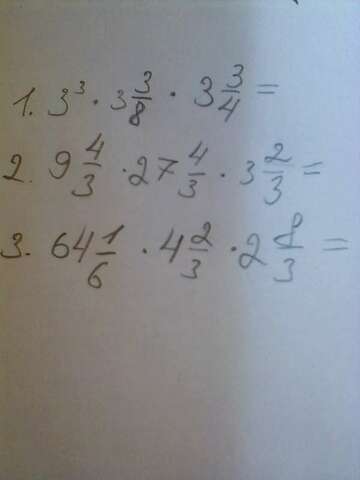 1. 3³ · 3 3/8 · 3 3/4 =
2. 9 4/3 · 27 4/3 · 3 2/3 =
3. 64 1/6 · 4 2/3 · 2 8/3 =